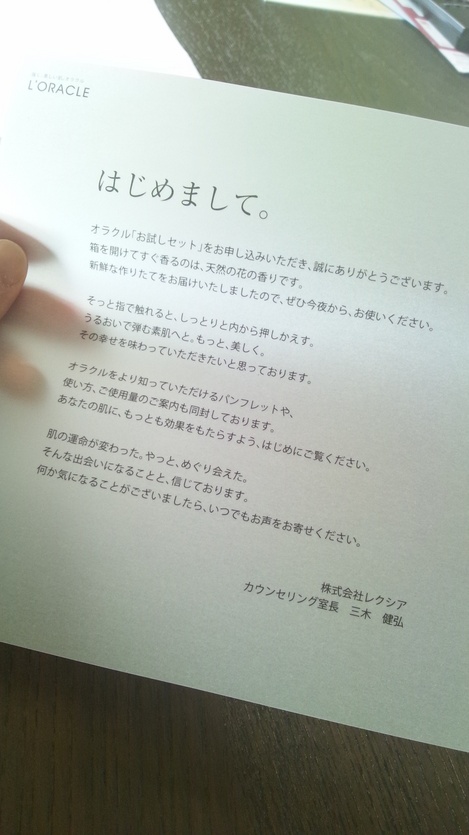 L'ORACLE
はじめまして。
オラクル「お試しセット」をお申し込みいただき、誠にありがとうございます。
箱を開けてすぐ香るのは、天然の花の香りです。
新鮮な作りたてをお届けいたしましたので、ぜひ今夜から、お使いください。
そっと指で触れると、しっとりと内から押しかえす。
うるおいで弾む素肌へと。もっと、美しく。
その幸せを味わっていただきたいと思っております。
オラクルをより知っていただけるパンフレットや、
使い方、ご使用量のご案内も同封しております。
あなたの肌に、もっとも効果をもたらすよう、はじめにご覧ください。
肌の運命が変わった。やっと、めぐり会えた。
そんな出会いになることと、信じております。
何か気になることがございましたら、いつでもお声をお寄せください。
株式会社レクシア
カウンセリング室長 三木 健弘